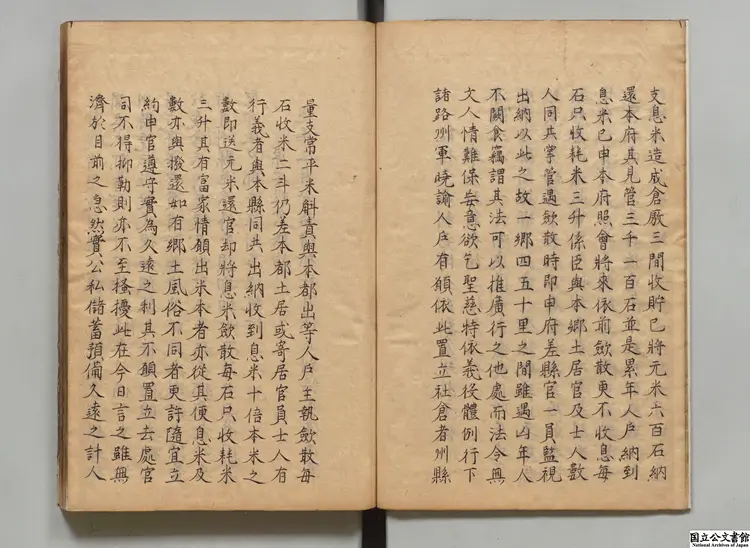 支息米造成倉厫三間收貯已將元米六百石納
還本府其見管三千一百石並是累年人戶納到
息米已申本府照會將來依前歛散更不收息每
石只收耗米三升係臣與本鄉土居官及士人數
人同共掌管遇歛散時即申府差縣官一員監視
出納以此之故一鄉四五十里之間雖遇凶年人
不闕食竊謂其法可以推廣行之他處而法令無
文人情難保妄意欲乞聖慈特依義役體例行下
諸路州軍曉諭人戶有願依此置立社倉者州縣
量支常平米斛責與本都出等人戶主執歛散每
石收米二斗仍差本都土居或寄居官員士人有
行義者與本縣同共出納收到息米十倍本米之
數即送元米還官却將息米歛散每石只收耗米
三升其有富家情願出米本者亦從其便息米及
數亦與撥還如有鄉土風俗不同者更許隨宜立
約申官遵守實為久遠之利其不願置立去處官
司不得抑勒則亦不至搔擾此在今日言之雖無
濟於目前之急然實公私儲蓄預備久遠之計人
国立公文書館
National Archives of Japan